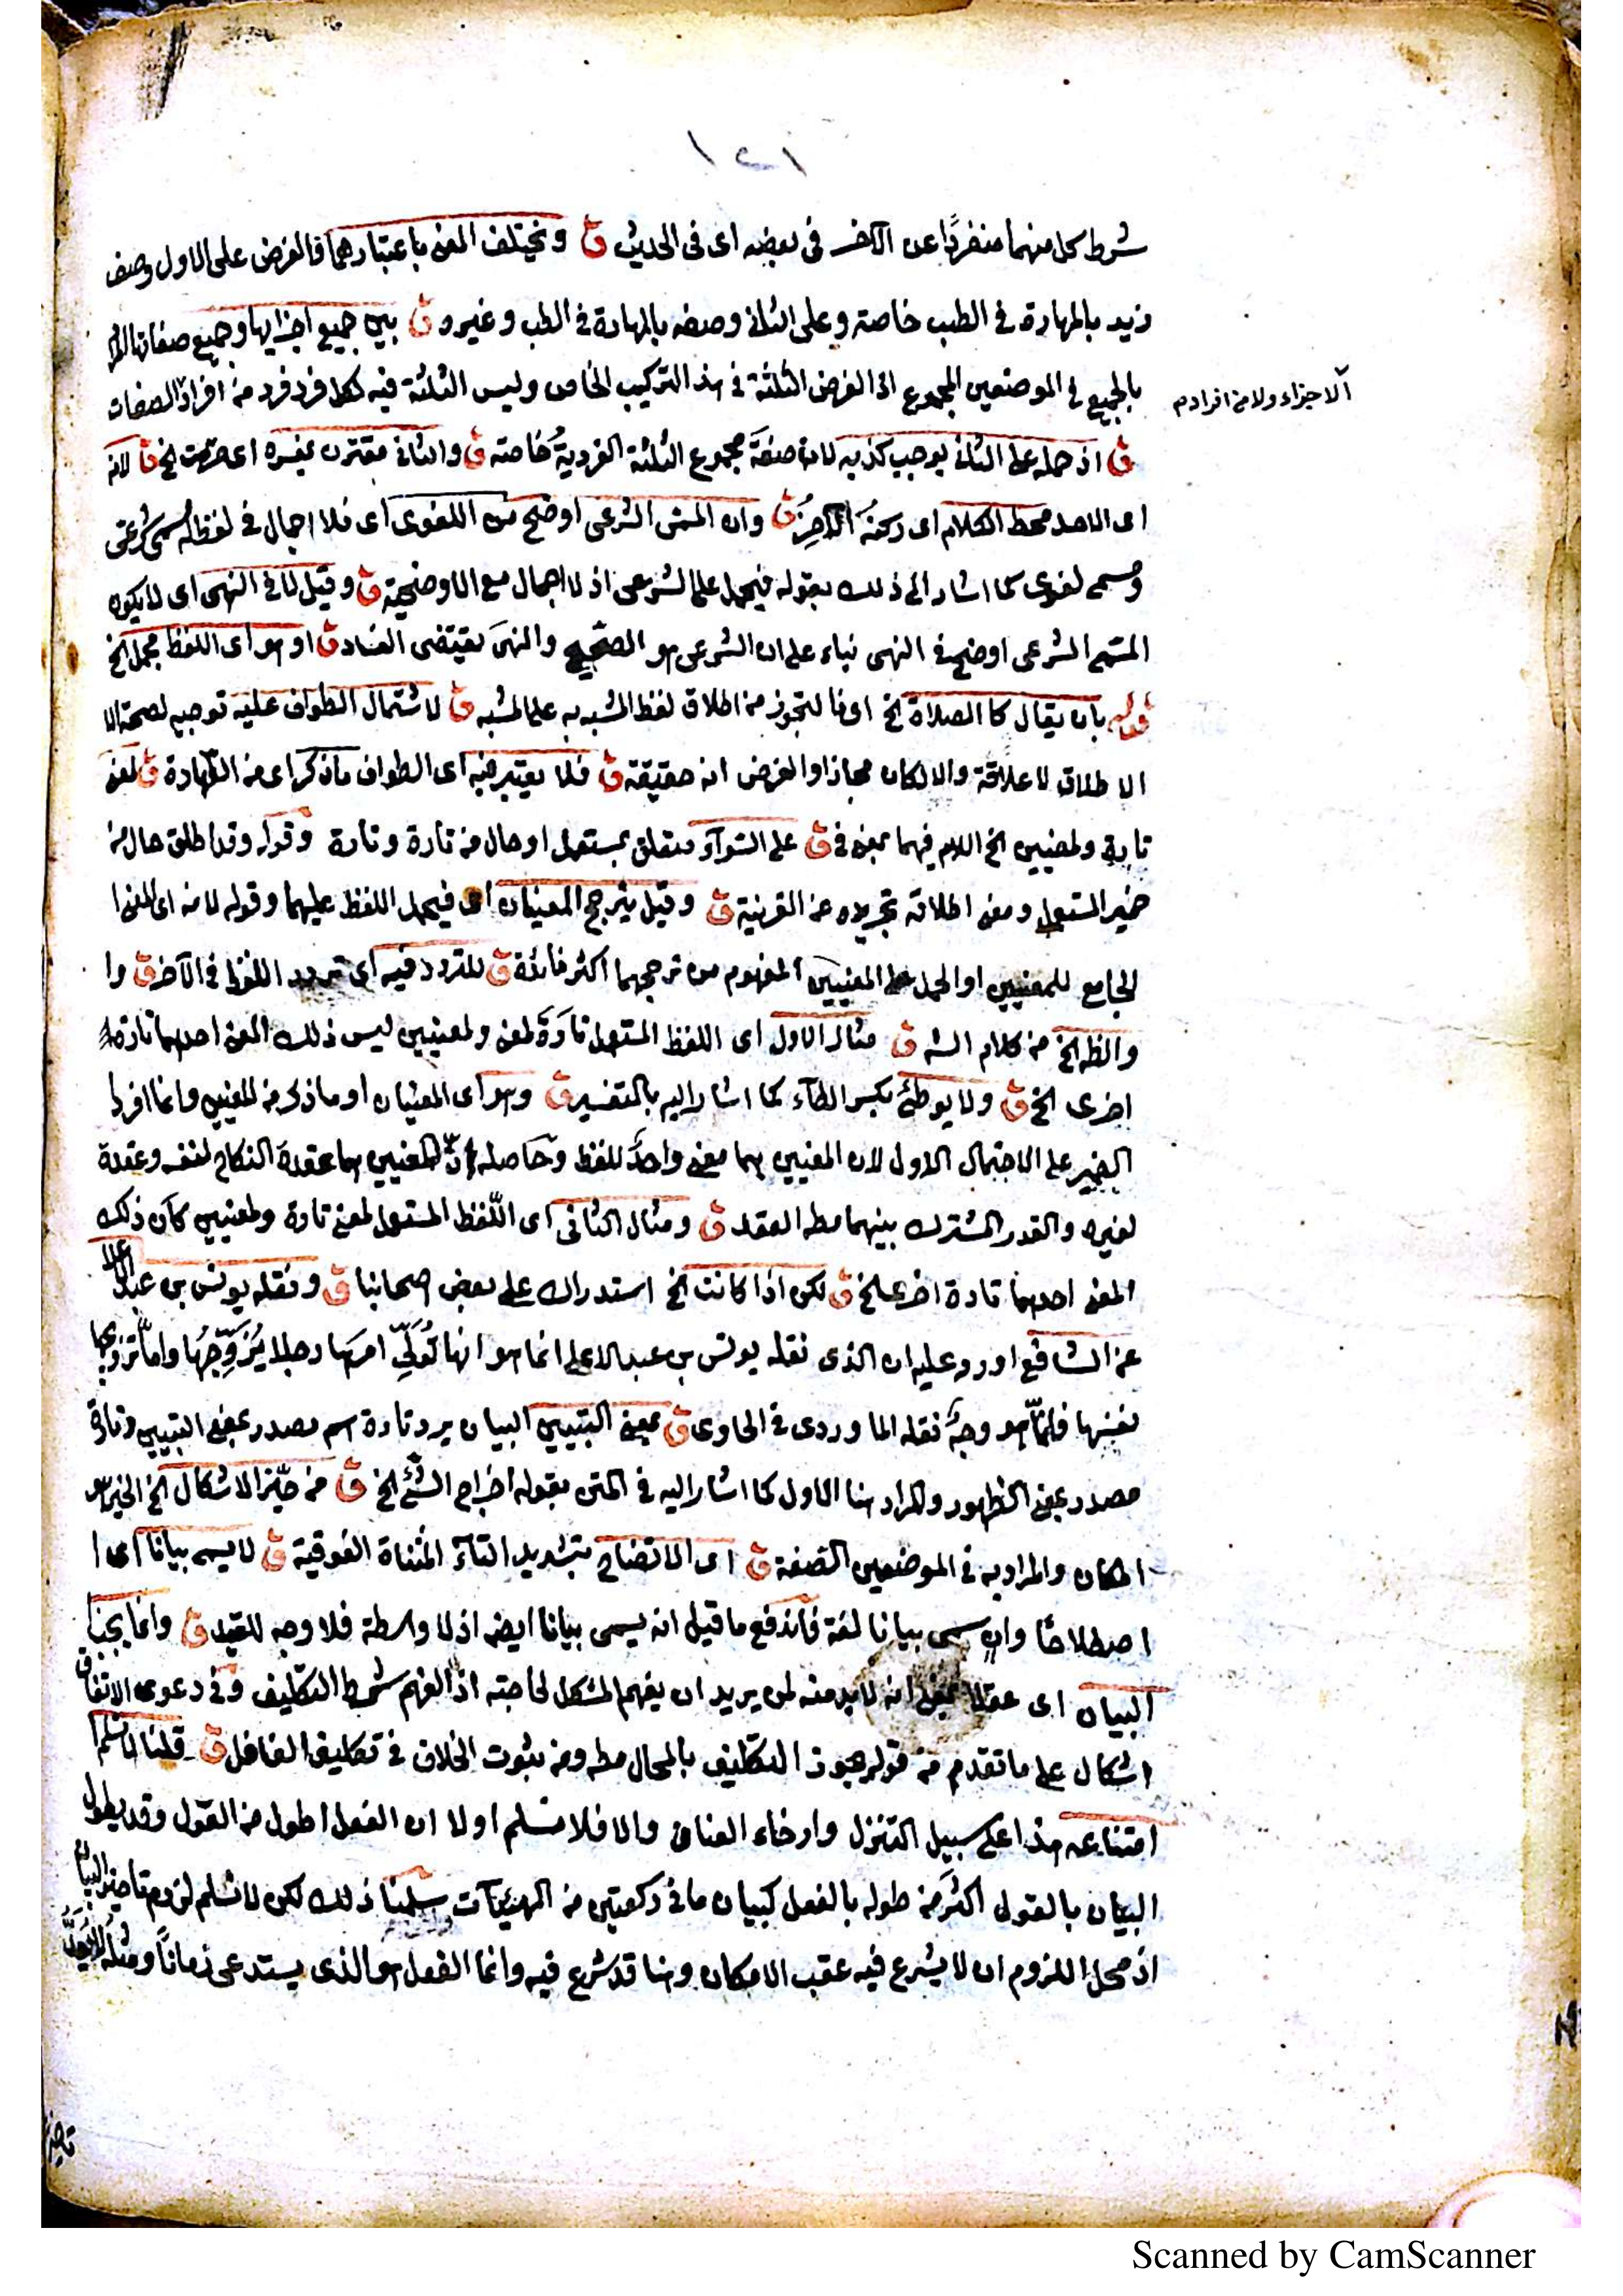 ١٢١
شرط كل منهما منفردًا عن الآخر فى بعضه اى فى الحديث ق ويختلف المعنى باعتبارهما فالغرض على الاول وصف
زيد بالمهارة فى الطب خاصة وعلى الثانى وصفه بالمهارة فى الطب وغيره ق بين جميع اجزائها وجميع صفاتها المراد
بالجميع فى الموضعين المجموع اذ الغرض الثلثة فى هذا التركيب الخاص وليس الثلثة فيه لكل فرد فرد من افراد الصفات
الاجزاء ولا من افراد م
ق اذ حمله على الثانى يوجب كذبه لان صفة مجموع الثلثة الفردية خاصة ق والثانى مقترن بمفسره اى حرمت الخ ق لانه
اى الاحد محط الكلام اى ركنه الاخير ق وان المسمى الشرعى اوضح من اللغوى اى فلا اجمال فى لفظ له مسمى شرعى
ومسمى لغوى كما اشار الى ذلك بقوله فيحمل على الشرعى اذ لا اجمال مع الاوضحية ق وقيل لا فى النهى اى لا يكون
المسمى الشرعى اوضح فى النهى بناء على ان الشرعى هو الصحيح والنهى يقتضى الفساد ق او هو اى اللفظ مجمل الخ
قوله بان يقال كالصلاة الخ اى فالتجوز من اطلاق لفظ المشبه به على المشبه ق لاشتمال الطواف عليه توجيه لصحة الا
الاطلاق لا علاقة والا لكان مجازا والغرض انه حقيقة ق فلا يعتبر فيه اى الطواف ما ذكر اى من الطهارة ق لمعنى
تارة ولمعنيين الخ اللام فيهما بمعنى فى ق على السواء متعلق بمستعمل او حال من تارة وتارة وقوله وقد اطلق حال من
ضمير المستعمل ومعنى اطلاقه تجريده عن القرينة ق وقيل يترجح المعنيان اى فيحمل اللفظ عليهما وقوله لانه اى المعنى
الجامع للمعنيين او الحمل على المعنيين المفهوم من ترجحهما اكثر فائدة ق للتردد فيه اى تردد اللفظ فى الآخر ق وا
والظ الخ من كلام الش ق مثال الاول اى اللفظ المستعمل تارة لمعنى ولمعنيين ليس ذلك المعنى احدهما تارة
اخرى الخ ق ولا يوطئ بكسر الطاء كما اشار اليه بالتفسير ق وهو اى المعنيان او ما ذكر من المعنيين وانما افرد
الضمير على الاحتمال الاول لان المعنيين هما معنى واحد للفظ وحاصله ان المعنيين هما عقدة النكاح لنفسه وعقدة
لغيره والقدر المشترك بينهما مط العقد ق ومثال الثانى اى اللفظ المستعمل لمعنى تارة ولمعنيين كان ذلك
المعنى احدهما تارة اخرى الخ ق لكن اذا كانت الخ استدراك على بعض اصحابنا ق ونقله يونس بن عبد الاعلى
عن الشافعى اورد عليه ان الذى نقله يونس بن عبد الاعلى انما هو انها تُوَلِّى امرها رجلا يُزَوِّجُهَا واما تزويجها
نفسها فانما هو وجه نقله الماوردى فى الحاوى ق بمعنى التبيين البيان يرد تارة اسم مصدر بمعنى التبيين وتارة
مصدر بمعنى الظهور والمراد هنا الاول كما اشار اليه فى المتن بقوله اخراج الشئ الخ ق من حيز الاشكال الخ الحيز هو
المكان والمراد به فى الموضعين الصفة ق اى الاتضاح بتشديد التاء المثناة الفوقية ق لا يسمى بيانا اى ا
اصطلاحا وان سمى بيانا لغة فاندفع ما قيل انه يسمى بيانا ايضا اذ لا واسطة فلا وجه للقيد ق وانما يجب
البيان اى عقلا بمعنى انه لا بد منه لمن يريد ان يفهم المشكل لحاجته اذ الفهم شرط التكليف وفى دعوى الاتفاق
اشكال على ما تقدم من قوله يجوز التكليف بالمحال مط ومن ثبوت الخلاف فى تكليف الغافل ق قلنا لا نسلم
امتناعه هذا على سبيل التنزل وارخاء العنان والا فلا نسلم اولا ان الفعل اطول من القول وقد يطول
البيان بالقول اكثر من طوله بالفعل كبيان ما فى ركعتين من الهيئات سلمنا ذلك لكن لا نسلم لزوم تاخير البيان
اذ محل اللزوم ان لا يشرع فيه عقب الامكان وهنا قد شرع فيه وانما الفعل هو الذى يستدعى زمانا ومثله لا يعد
Scanned by CamScanner